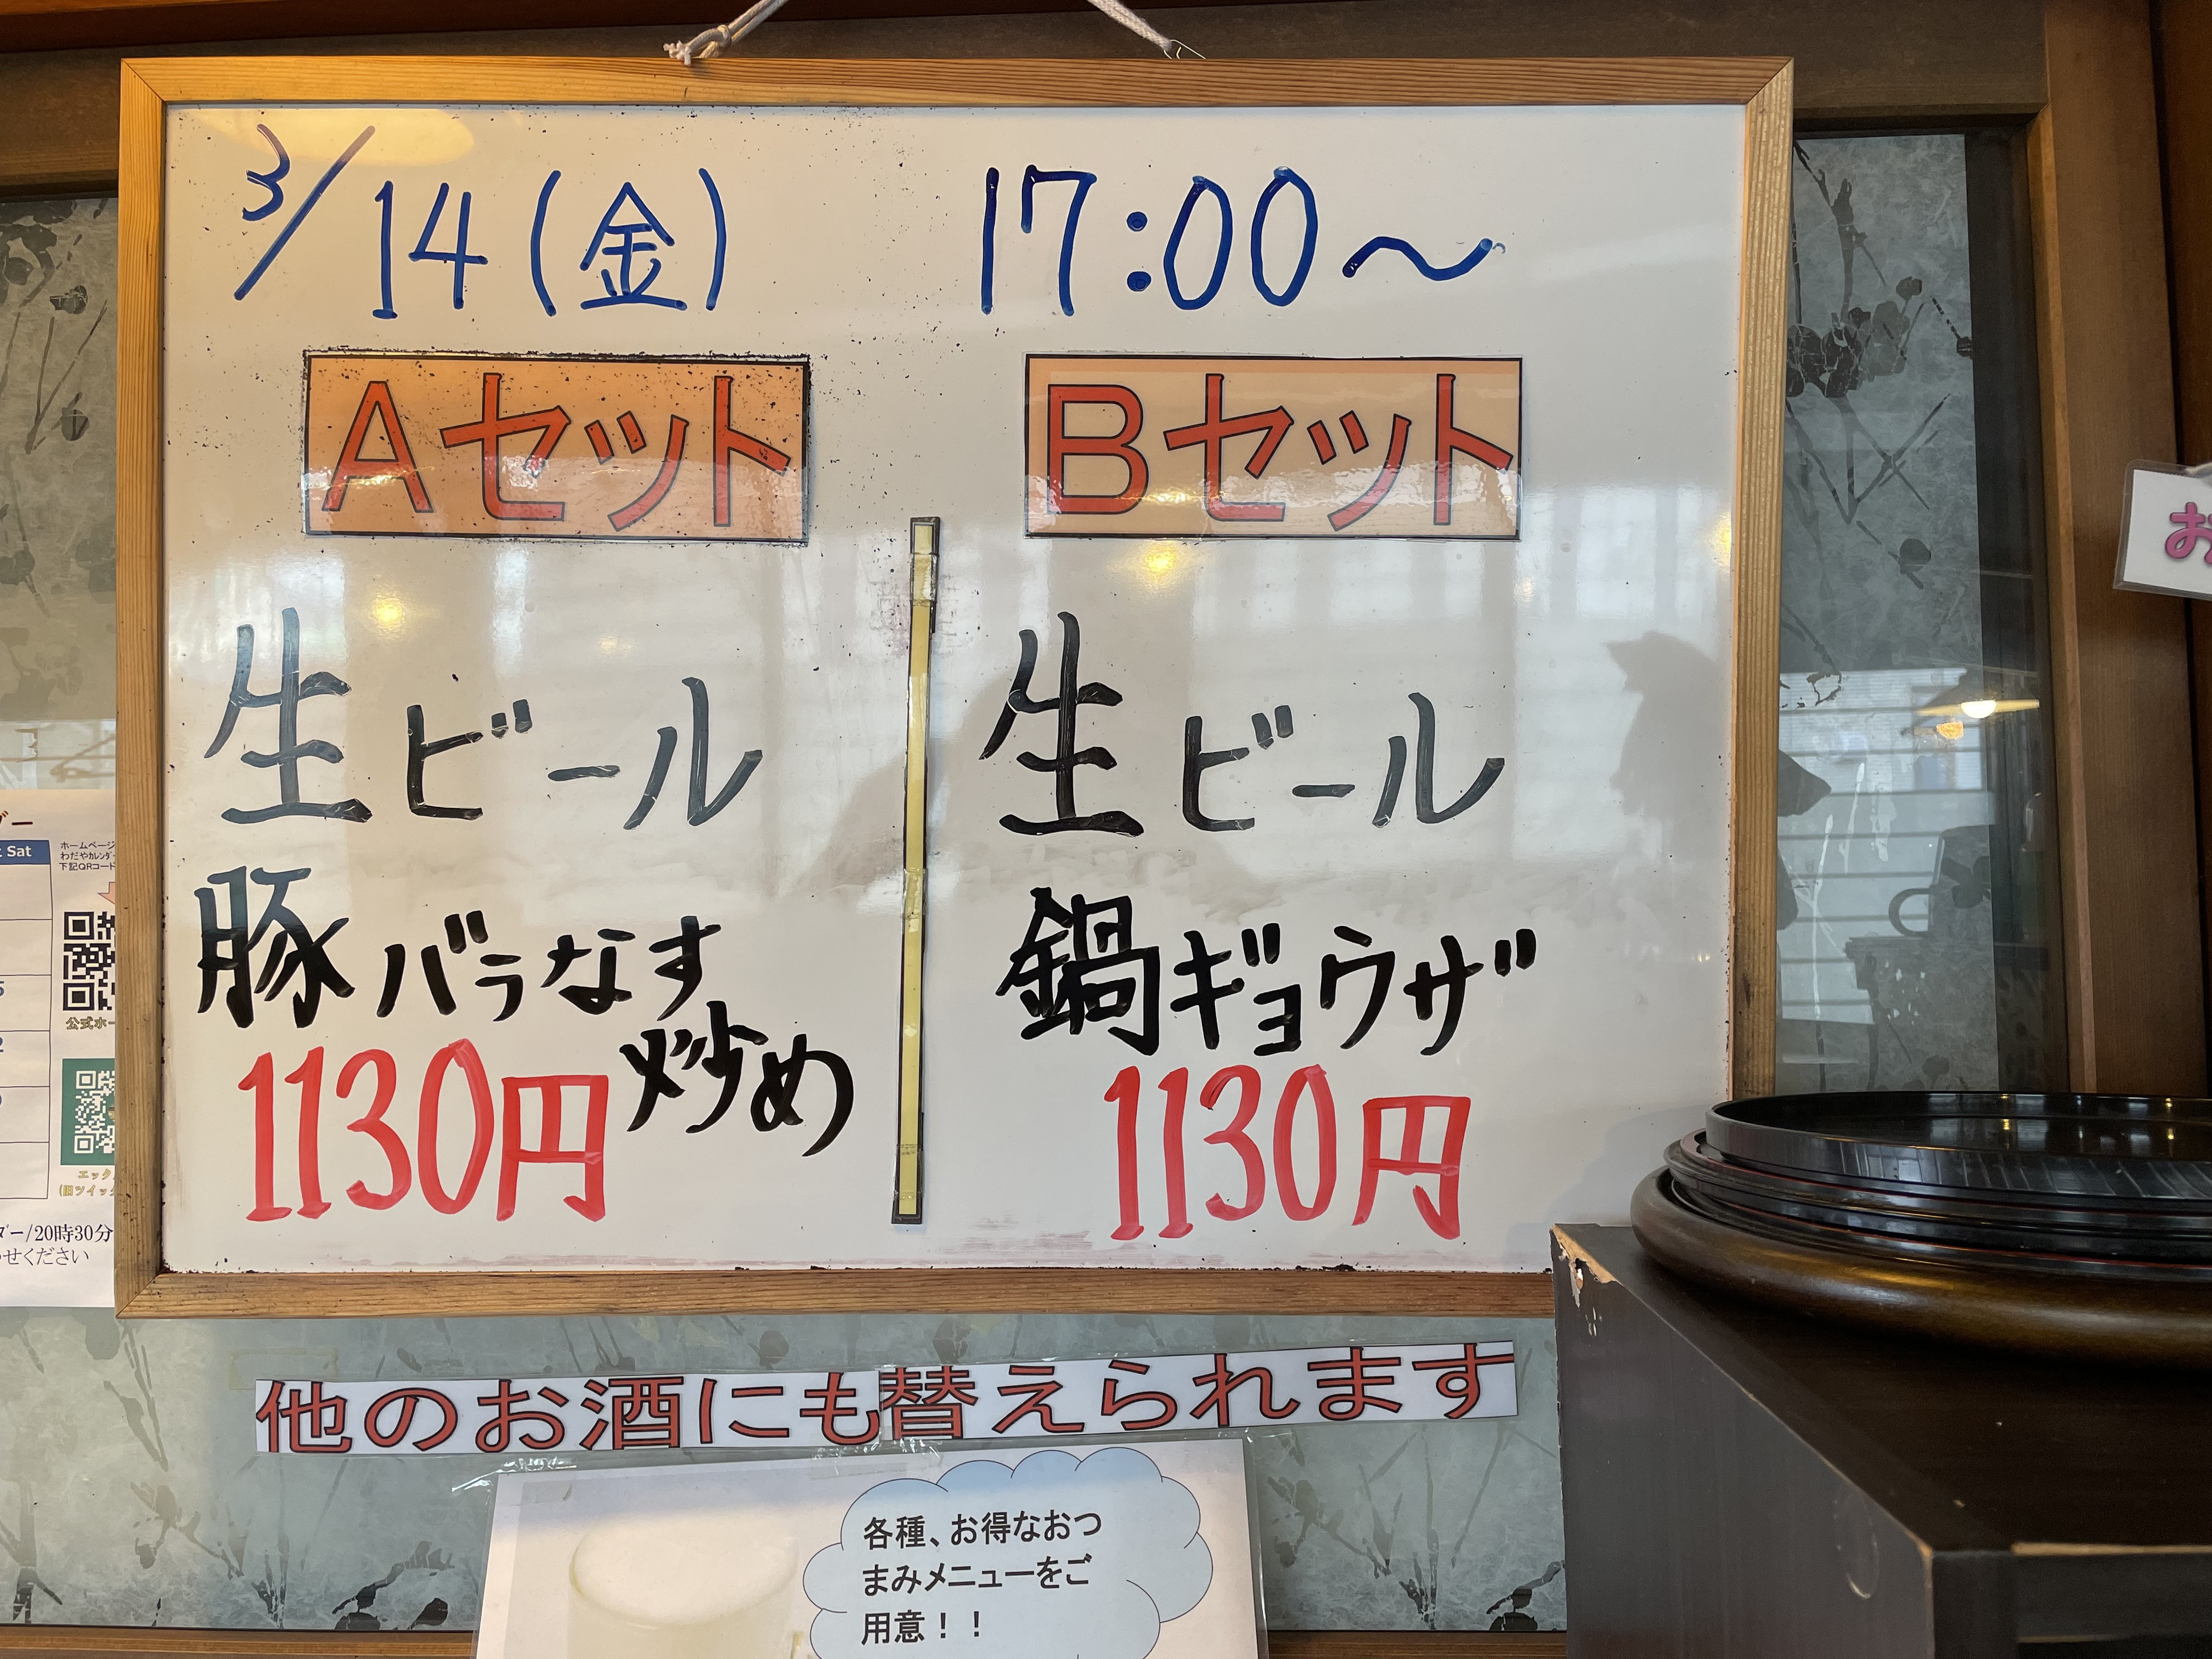 3/14(金) 17:00〜
Aセット
生ビール
豚バラなす
炒め
1130円
Bセット
生ビール
鍋ギョウザ
1130円
他のお酒にも替えられます
各種、お得なおつ
まみメニューをご
用意！！
Sat
ホームページ
下記QRコード
公式ホー
/20時30分
せください
お